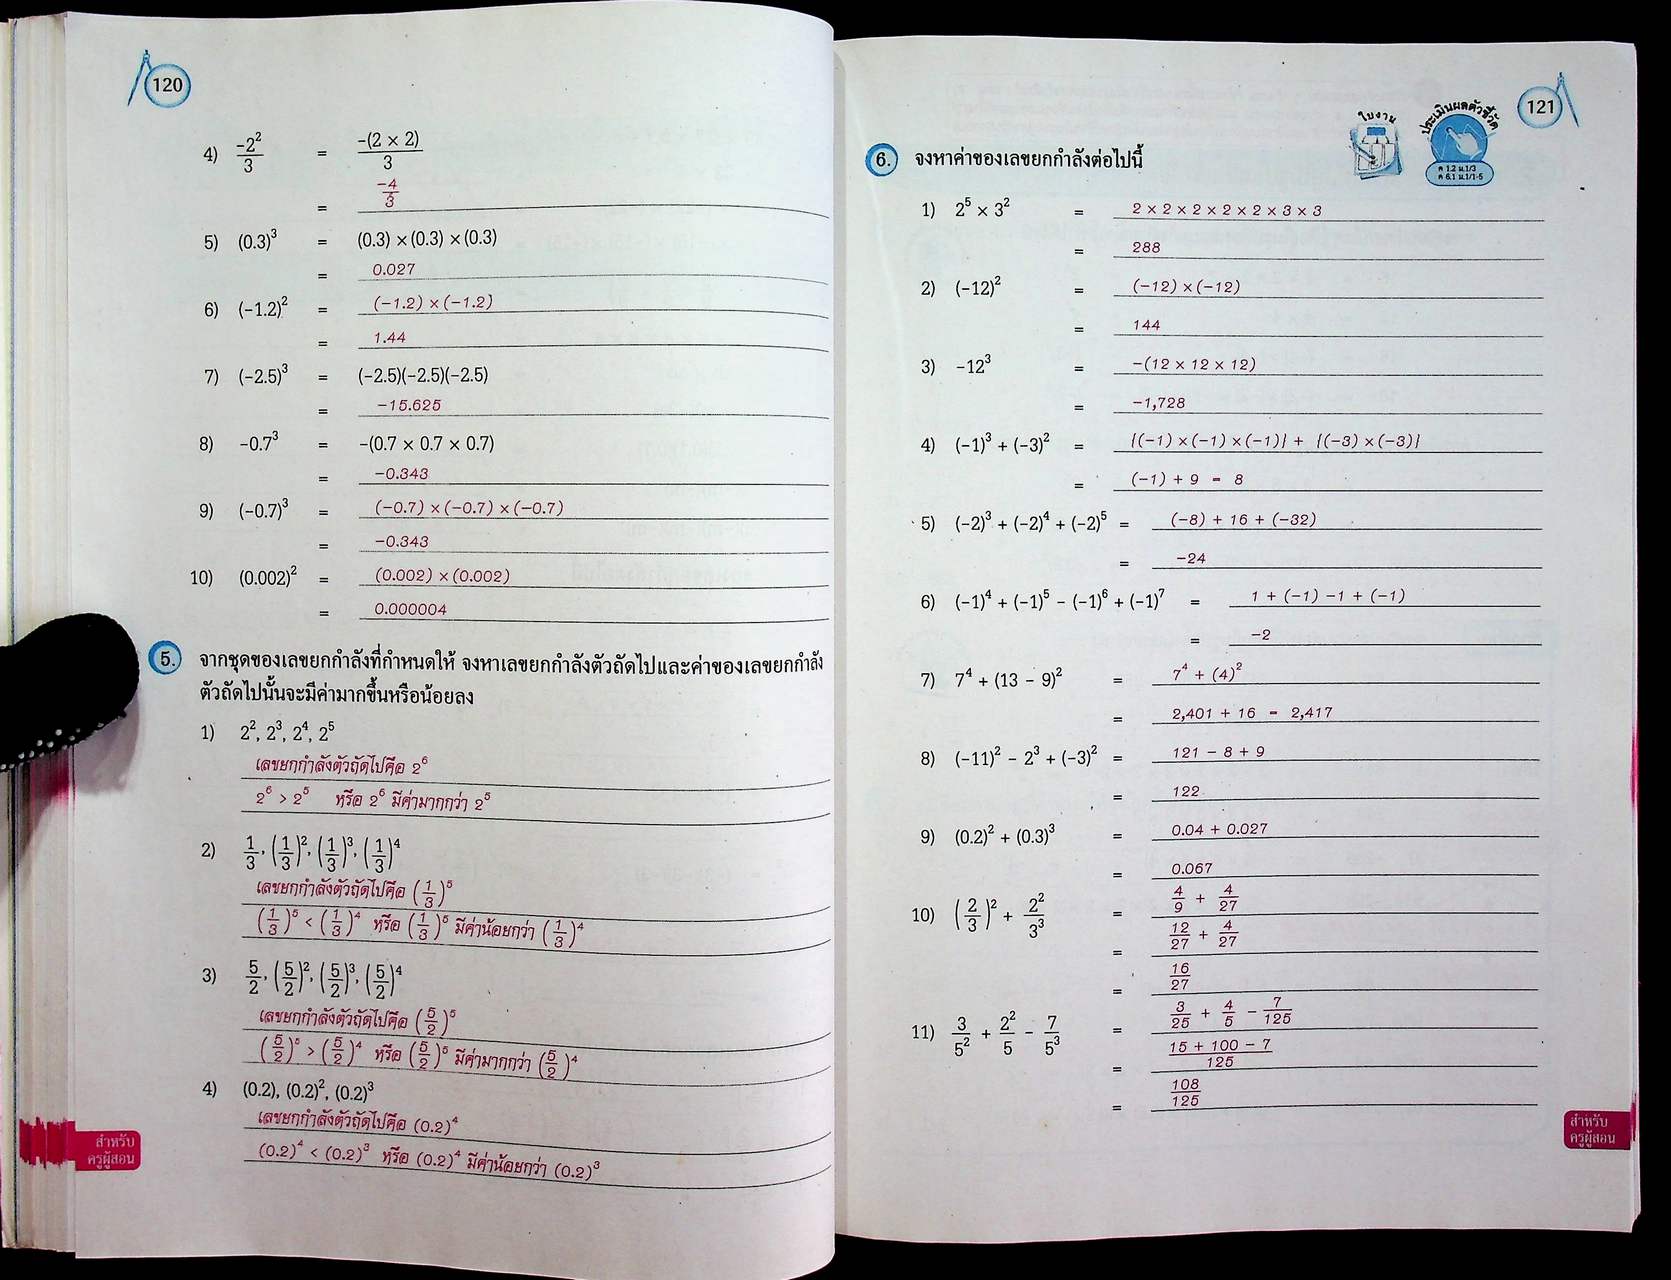 120
4) -2²/3 = -(2 × 2)/3
= -4/3
5) (0.3)³ = (0.3) × (0.3) × (0.3)
= 0.027
6) (-1.2)² = (-1.2) × (-1.2)
= 1.44
7) (-2.5)³ = (-2.5)(-2.5)(-2.5)
= -15.625
8) -0.7³ = -(0.7 × 0.7 × 0.7)
= -0.343
9) (-0.7)³ = (-0.7) × (-0.7) × (-0.7)
= -0.343
10) (0.002)² = (0.002) × (0.002)
= 0.000004
5. จากชุดของเลขยกกำลังที่กำหนดให้ จงหาเลขยกกำลังตัวถัดไปและค่าของเลขยกกำลัง
ตัวถัดไปนั้นจะมีค่ามากขึ้นหรือน้อยลง
1) 2², 2³, 2⁴, 2⁵
เลขยกกำลังตัวถัดไปคือ 2⁶
2⁶ > 2⁵ หรือ 2⁶ มีค่ามากกว่า 2⁵
2) 1/3, (1/3)², (1/3)³, (1/3)⁴
เลขยกกำลังตัวถัดไปคือ (1/3)⁵
(1/3)⁵ < (1/3)⁴ หรือ (1/3)⁵ มีค่าน้อยกว่า (1/3)⁴
3) 5/2, (5/2)², (5/2)³, (5/2)⁴
เลขยกกำลังตัวถัดไปคือ (5/2)⁵
(5/2)⁵ > (5/2)⁴ หรือ (5/2)⁵ มีค่ามากกว่า (5/2)⁴
4) (0.2), (0.2)², (0.2)³
เลขยกกำลังตัวถัดไปคือ (0.2)⁴
(0.2)⁴ < (0.2)³ หรือ (0.2)⁴ มีค่าน้อยกว่า (0.2)³
สำหรับ
ครูผู้สอน
121
ใบงาน
ประเมินผลตัวชี้วัด
ค 1.2 ม.1/3
ค 6.1 ม.1/1-5
6. จงหาค่าของเลขยกกำลังต่อไปนี้
1) 2⁵ × 3² = 2 × 2 × 2 × 2 × 2 × 3 × 3
= 288
2) (-12)² = (-12) × (-12)
= 144
3) -12³ = -(12 × 12 × 12)
= -1,728
4) (-1)³ + (-3)² = {(-1) × (-1) × (-1)} + {(-3) × (-3)}
= (-1) + 9 = 8
5) (-2)³ + (-2)⁴ + (-2)⁵ = (-8) + 16 + (-32)
= -24
6) (-1)⁴ + (-1)⁵ - (-1)⁶ + (-1)⁷ = 1 + (-1) -1 + (-1)
= -2
7) 7⁴ + (13 - 9)² = 7⁴ + (4)²
= 2,401 + 16 = 2,417
8) (-11)² - 2³ + (-3)² = 121 - 8 + 9
= 122
9) (0.2)² + (0.3)³ = 0.04 + 0.027
= 0.067
10) (2/3)² + 2²/3³ = 4/9 + 4/27
= 12/27 + 4/27
= 16/27
11) 3/5² + 2²/5 - 7/5³ = 3/25 + 4/5 - 7/125
= (15 + 100 - 7)/125
= 108/125
สำหรับ
ครูผู้สอน